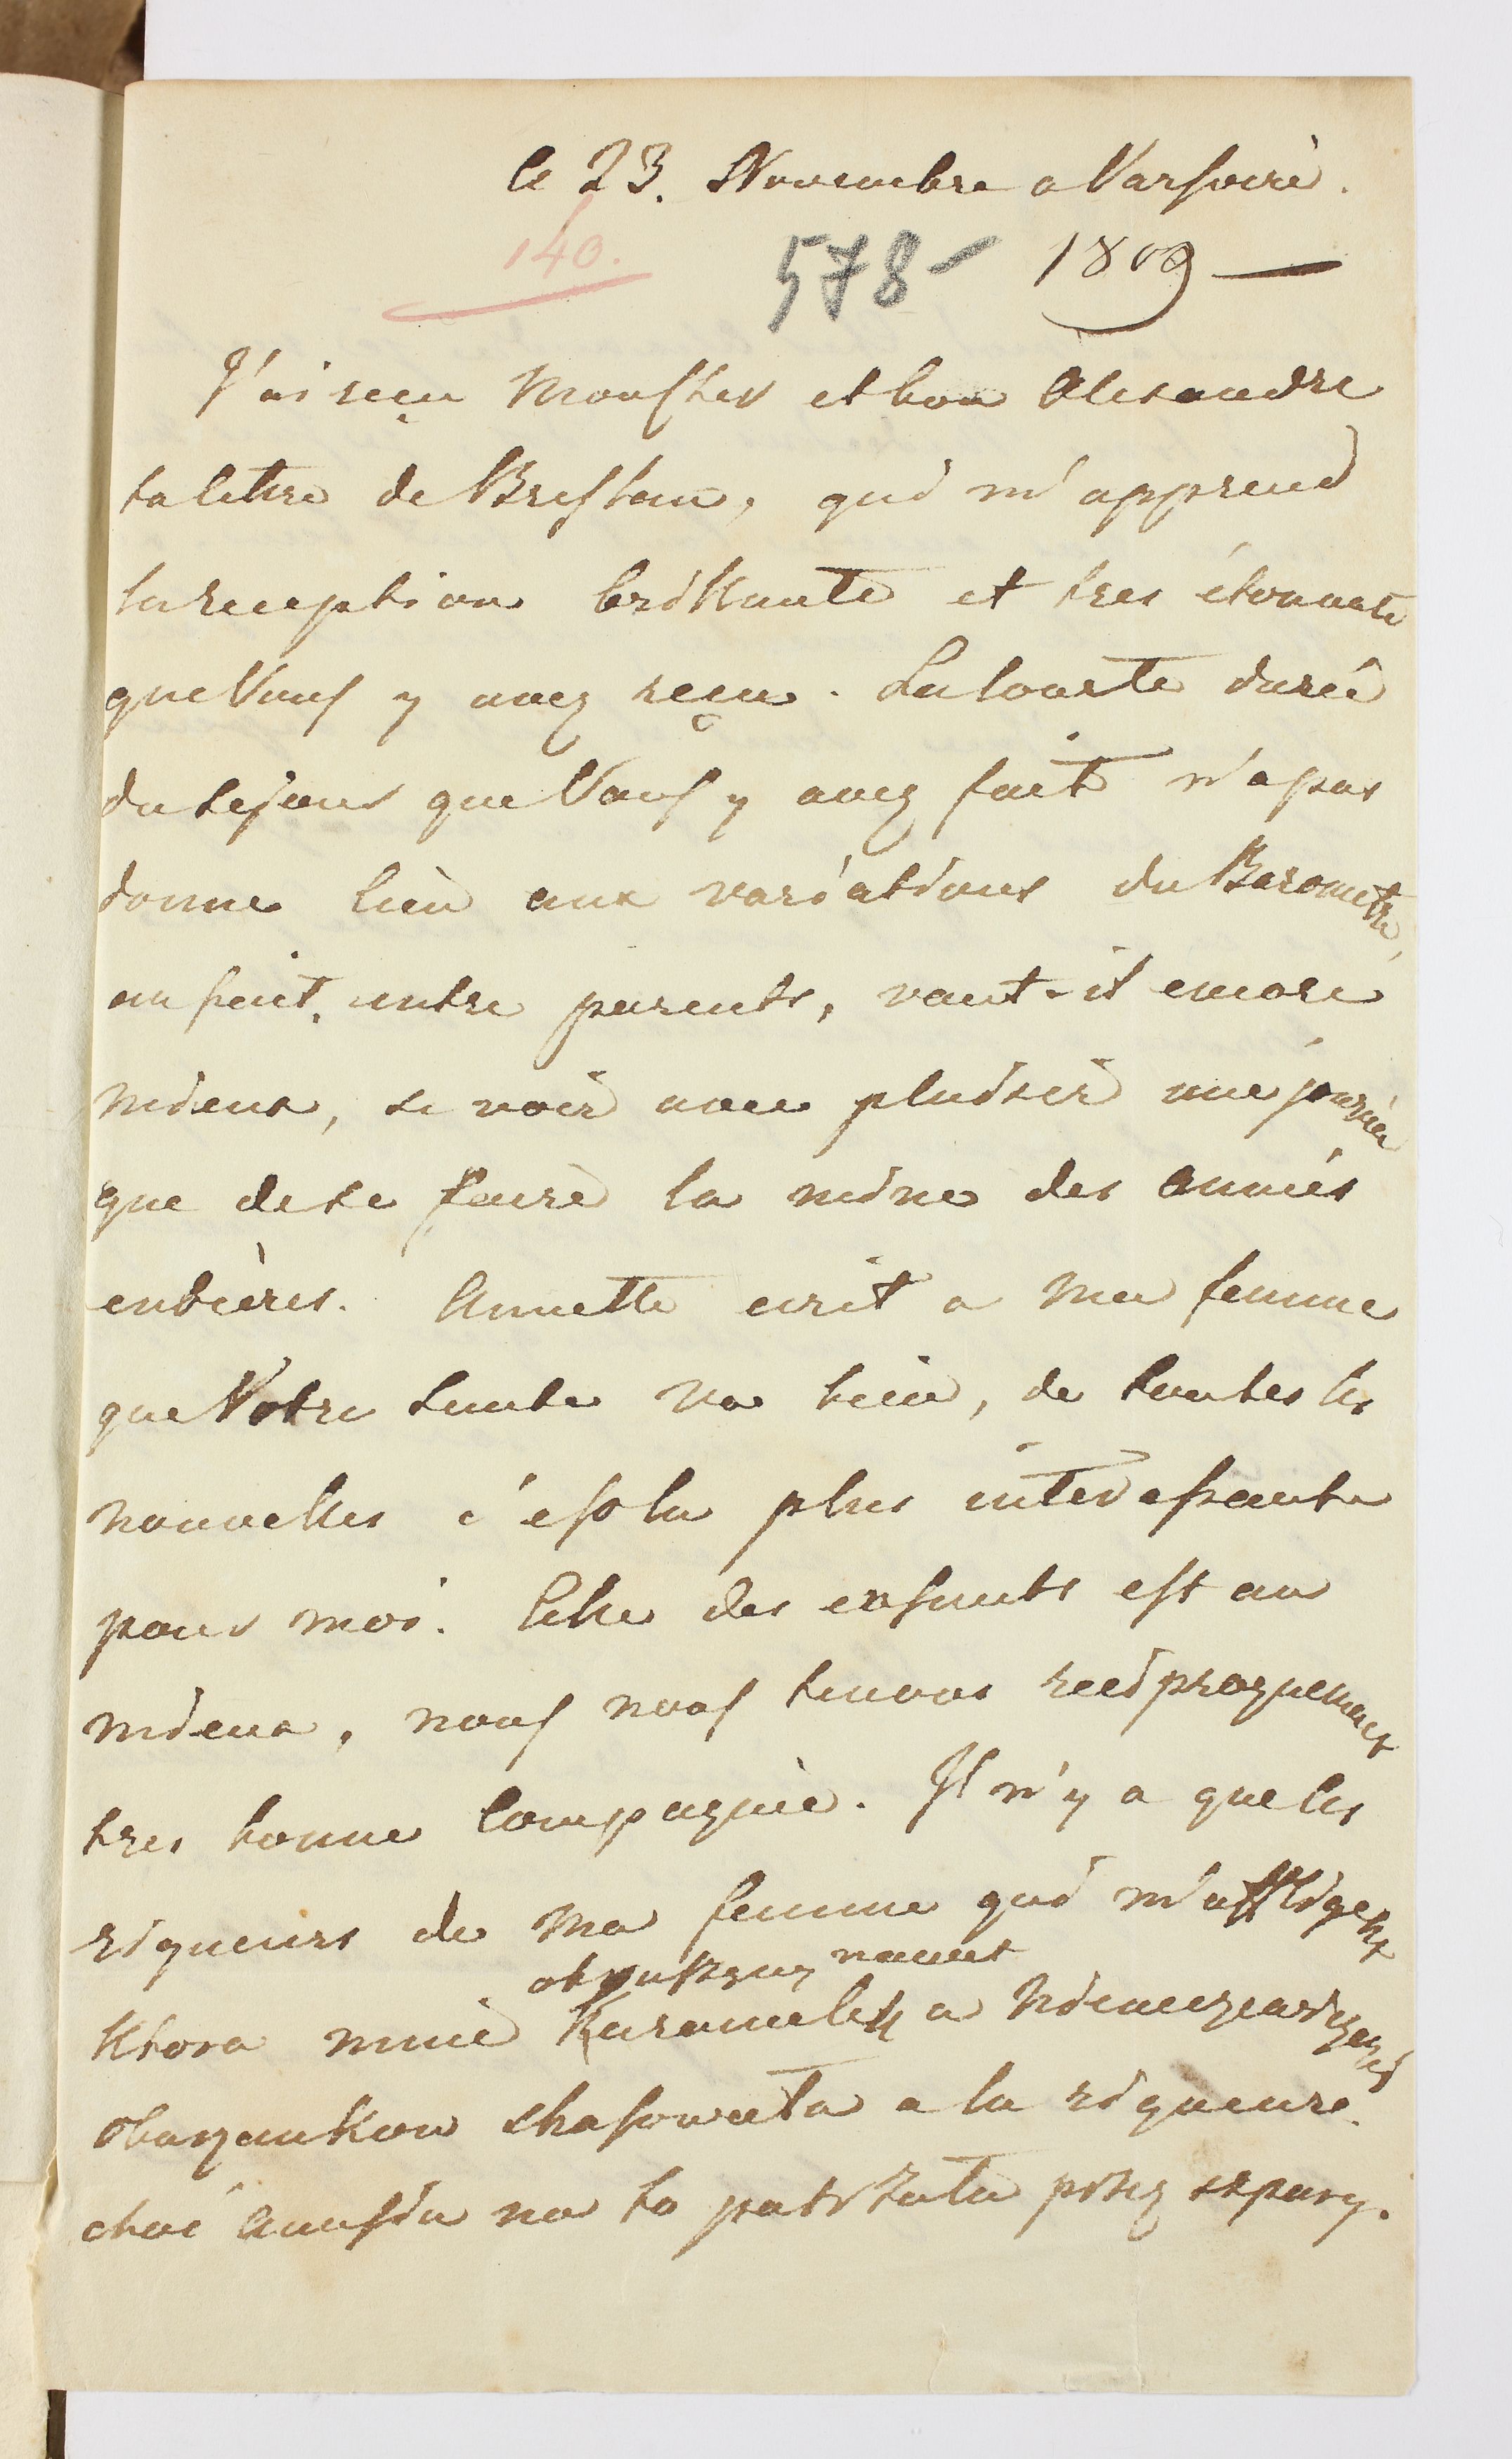 le 23. Novembre a Varsovie.
140.
578 - 1809 —
J'ai reçu Mon cher et bon Alexandre
ta lettre de Breslau, qui m'apprend
la reception brillante et tres étonnante
que Vous y avez reçu. La courte durée
du sejour que Vous y avez fait n'a pas
donne lieu aux variations du Barometre,
au fait, entre parents, vaut-il encore
mieux, se voir avec plaisir une journée
que de se faire la mine des années
entières. Annette ecrit a Ma femme
que Votre Santé Va bien, de toutes les
nouvelles c'est la plus interessante
pour moi. Celle des enfants est au
mieux, nous nous tenons reciproquement
tres bonne Compagnie. Il n'y a que les
rigueurs de Ma femme qui m'affligent
Ktora mnie nawet
a la rigueure.
choć Anusia na to patrzała przez szpary.